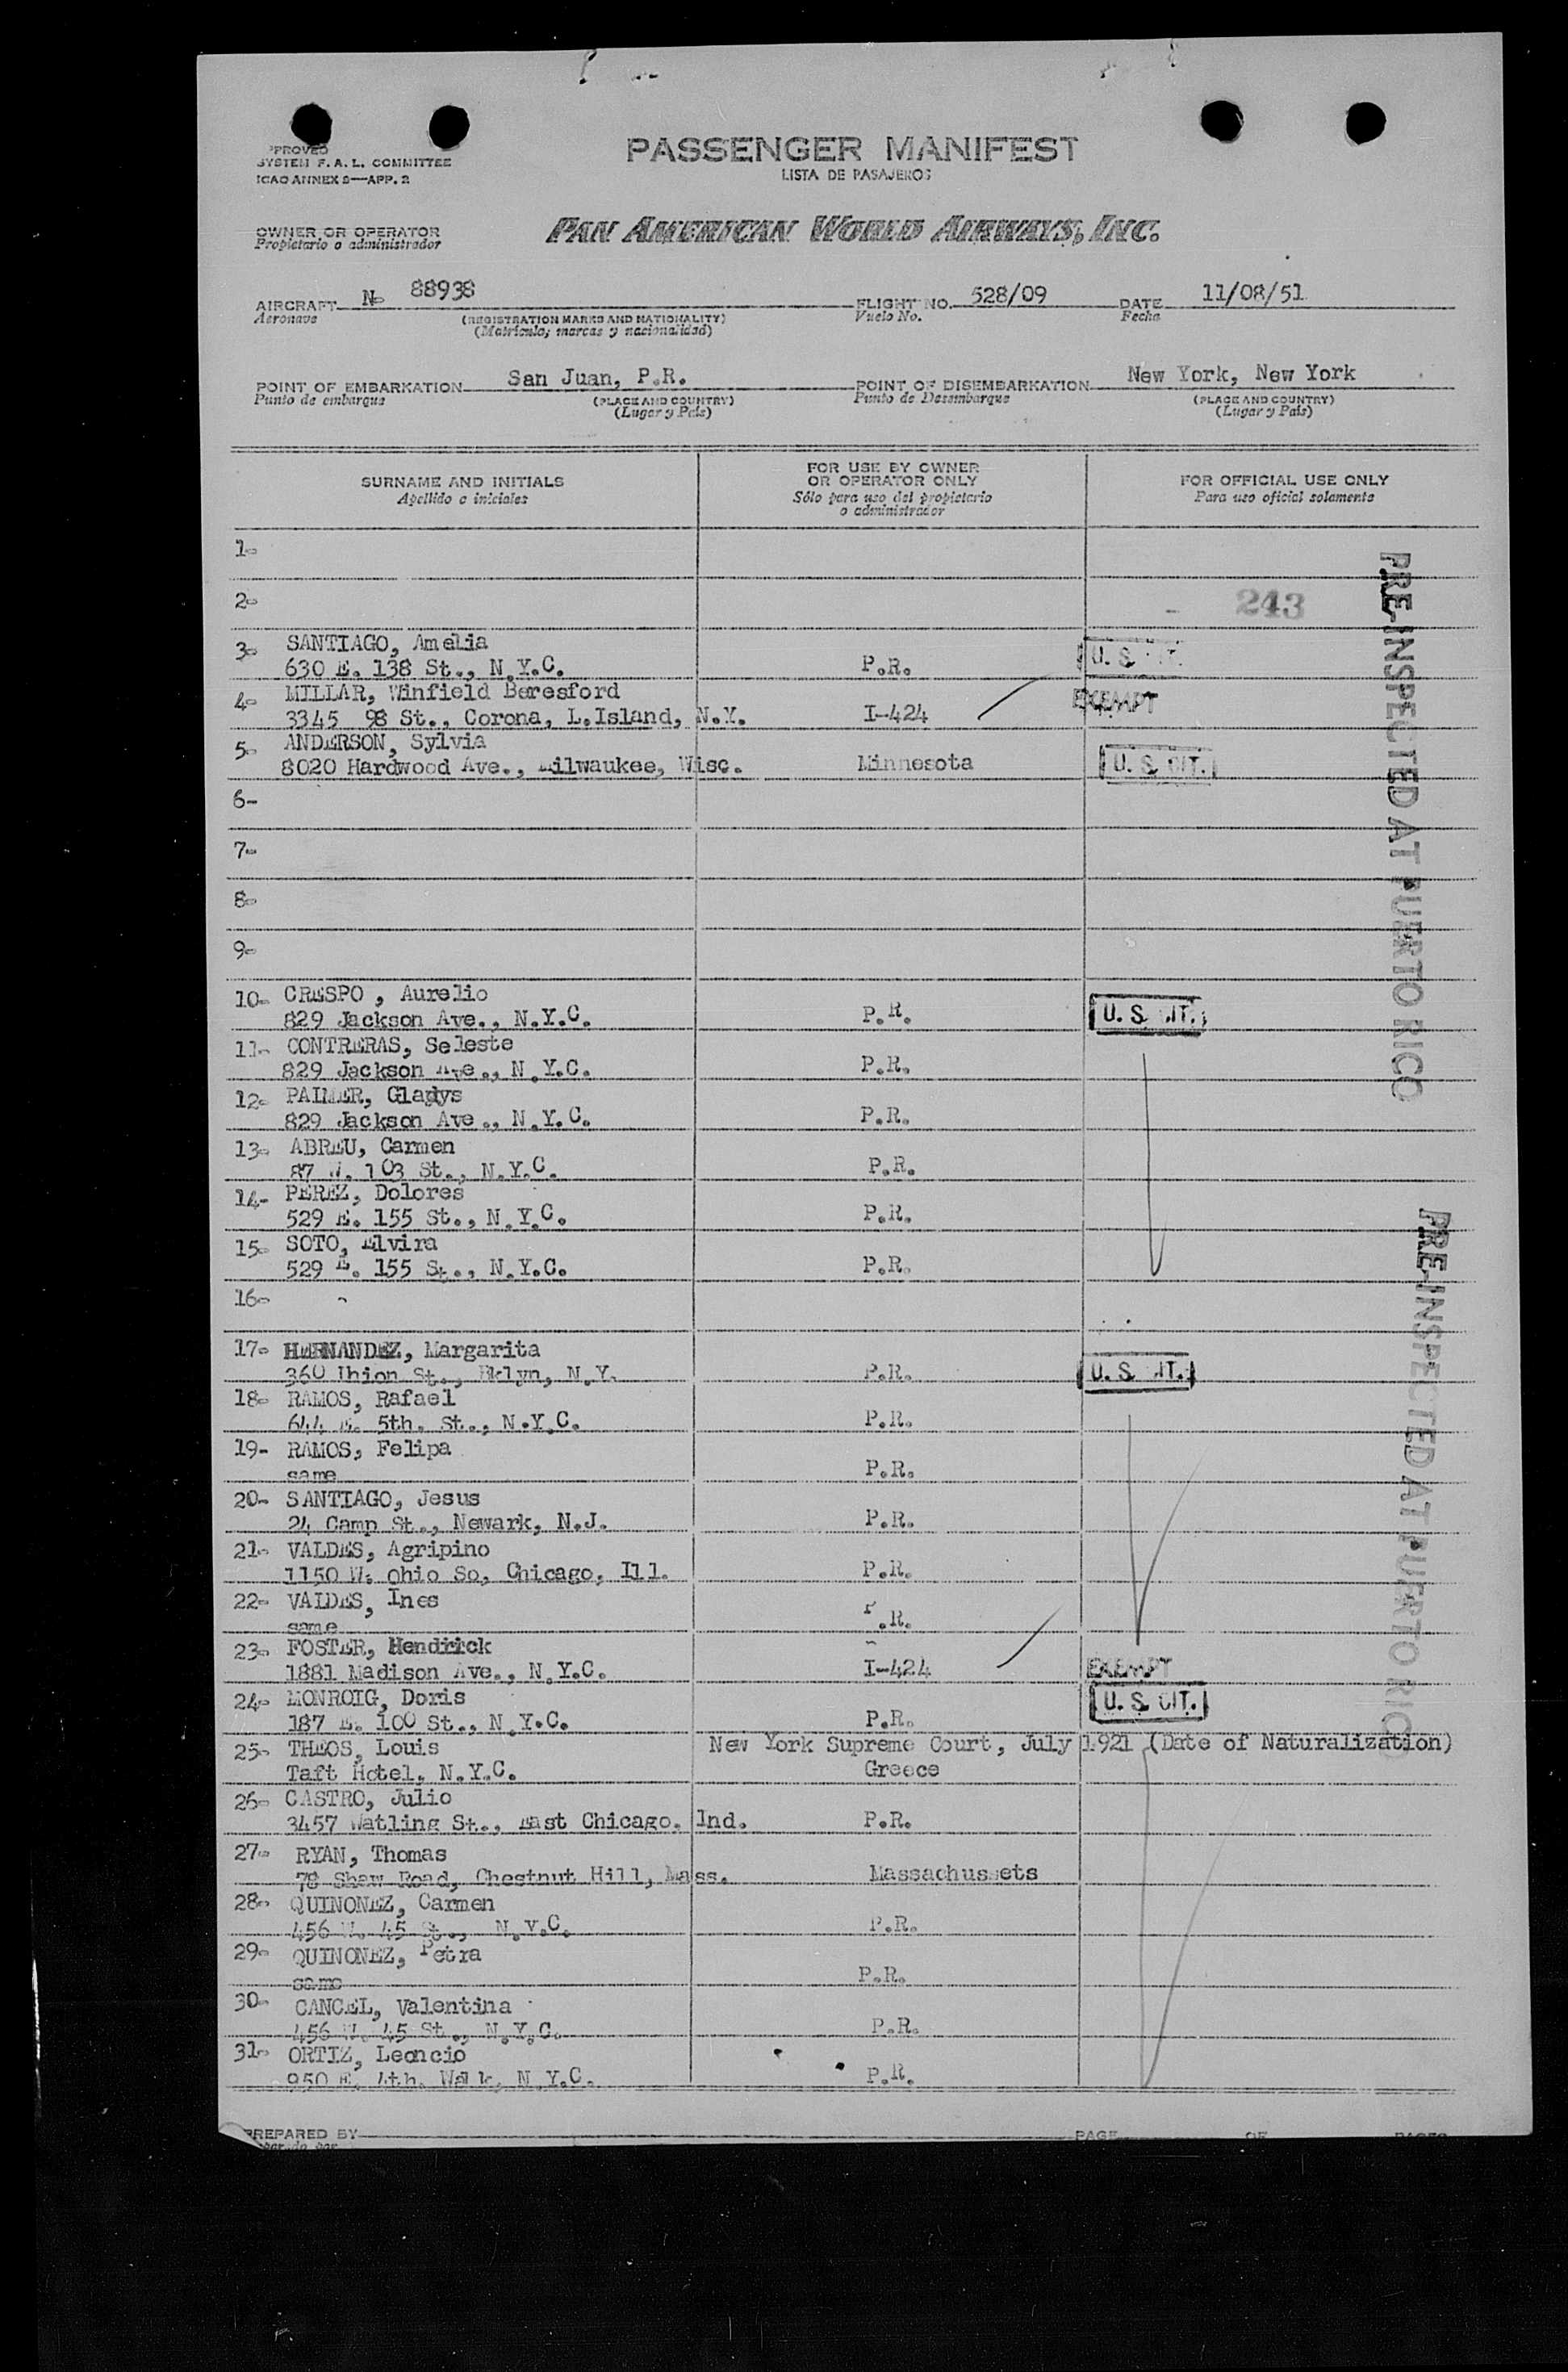 PPROVED
SYSTEM F. A. L. COMMITTEE
ICAO ANNEX 9—APP. 2
PASSENGER MANIFEST
LISTA DE PASAJEROS
OWNER OR OPERATOR
Propietario o administrador
PAN AMERICAN WORLD AIRWAYS, INC.
AIRCRAFT N- 88938 FLIGHT NO. 528/09 DATE 11/08/51
Aeronave (REGISTRATION MARKS AND NATIONALITY) Vuelo No. Fecha
(Matrícula; marcas y nacionalidad)
POINT OF EMBARKATION San Juan, P.R. POINT OF DISEMBARKATION New York, New York
Punto de embarque (PLACE AND COUNTRY) Punto de Desembarque (PLACE AND COUNTRY)
(Lugar y País) (Lugar y País)
SURNAME AND INITIALS FOR USE BY OWNER OR OPERATOR ONLY FOR OFFICIAL USE ONLY
Apellido o iniciales Sólo para uso del propietario o administrador Para uso oficial solamente
1-
2- 243
3- SANTIAGO, Amelia
630 E. 138 St., N.Y.C. P.R. U. S.
4- MILLAR, Winfield Beresford EXEMPT
3345 98 St., Corona, L.Island, N.Y. I-424
5- ANDERSON, Sylvia
8020 Hardwood Ave., Milwaukee, Wisc. Minnesota U. S. CIT.
6-
7-
8-
9-
10- CRESPO , Aurelio
829 Jackson Ave., N.Y.C. P.R. U. S. CIT.
11- CONTRERAS, Seleste
829 Jackson Ave., N.Y.C. P.R.
12- PALMER, Gladys
829 Jackson Ave., N.Y.C. P.R.
13- ABREU, Carmen
87 W. 103 St., N.Y.C. P.R.
14- PEREZ, Dolores
529 E. 155 St., N.Y.C. P.R.
15- SOTO, Elvira
529 E. 155 St., N.Y.C. P.R.
16-
17- HERNANDEZ, Margarita
360 Union St., Bklyn, N.Y. P.R. U. S. CIT.
18- RAMOS, Rafael
644 E. 5th. St., N.Y.C. P.R.
19- RAMOS, Felipa
same P.R.
20- SANTIAGO, Jesus
24 Camp St., Newark, N.J. P.R.
21- VALDES, Agripino
1150 W. Ohio So, Chicago, Ill. P.R.
22- VALDES, Ines
same P.R.
23- FOSTER, Hendrick
1881 Madison Ave., N.Y.C. I-424 EXEMPT
24- MONROIG, Doris
187 E. 100 St., N.Y.C. P.R. U. S. CIT.
25- THEOS, Louis New York Supreme Court, July 1921 (Date of Naturalization)
Taft Hotel, N.Y.C. Greece
26- CASTRO, Julio
3457 Watling St., East Chicago, Ind. P.R.
27- RYAN, Thomas
78 Shaw Road, Chestnut Hill, Mass. Massachussets
28- QUINONEZ, Carmen
456 W. 45 St., N.Y.C. P.R.
29- QUINONEZ, Petra
same P.R.
30- CANCEL, Valentina
456 W. 45 St., N.Y.C. P.R.
31- ORTIZ, Leoncio
950 E. 4th. Walk, N.Y.C. P.R.
PREPARED BY PAGE OF PAGES
PRE-INSPECTED AT PUERTO RICO
PRE-INSPECTED AT PUERTO RICO